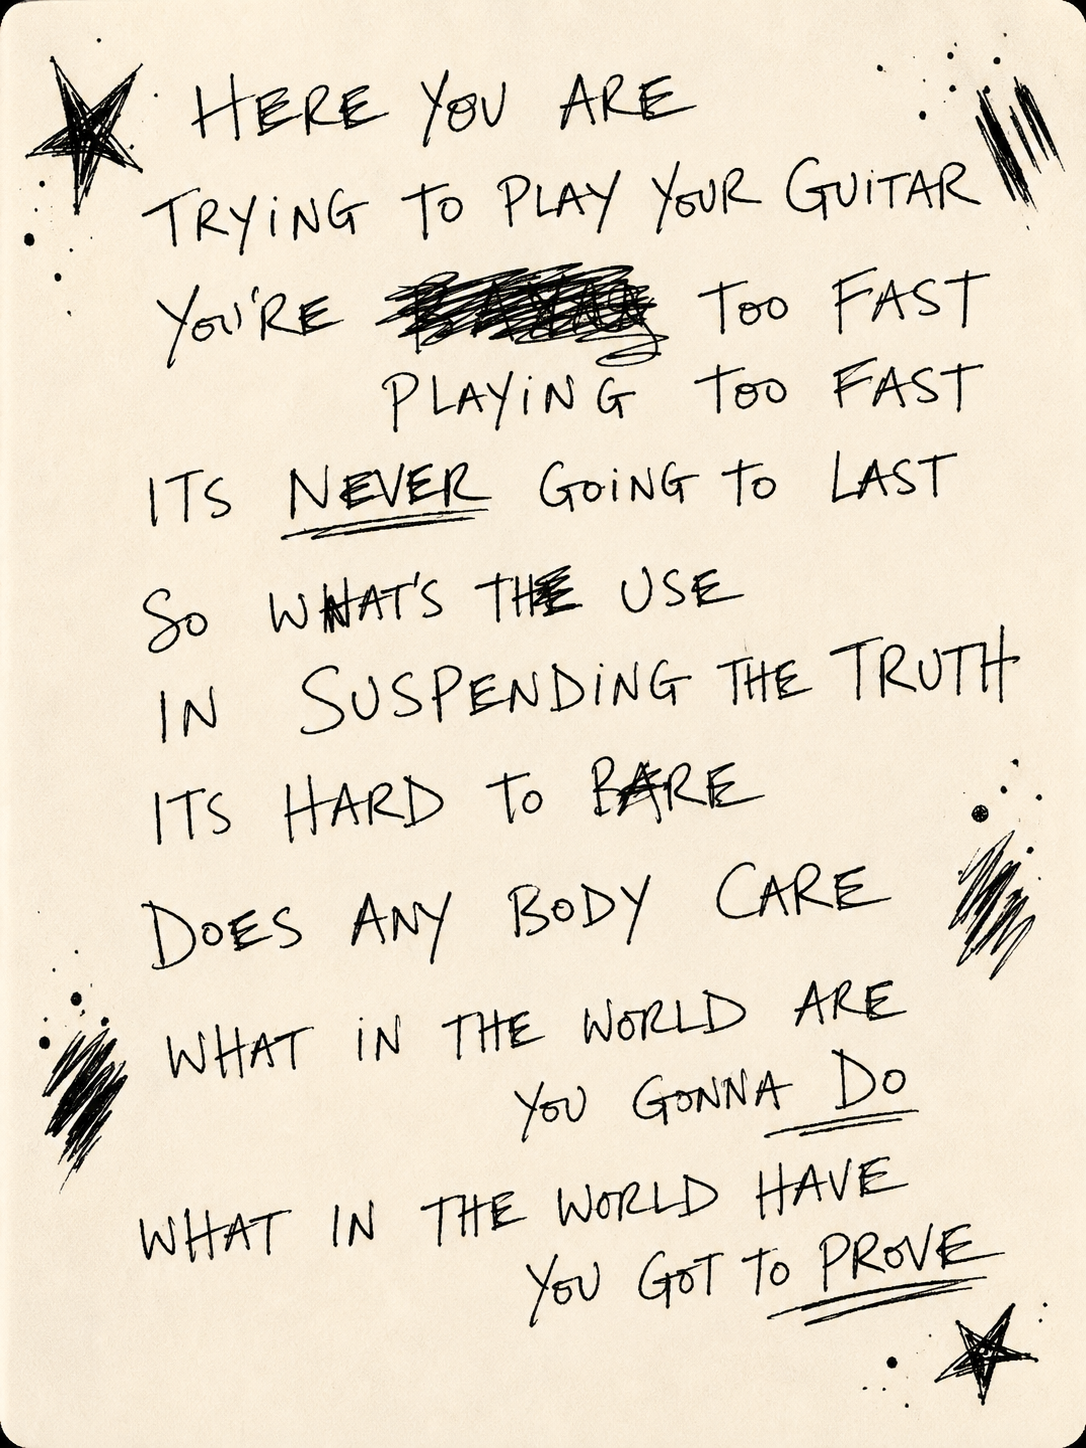 HERE YOU ARE
TRYING TO PLAY YOUR GUITAR
YOU'RE TOO FAST
PLAYING TOO FAST
ITS NEVER GOING TO LAST
SO WHAT'S THE USE
IN SUSPENDING THE TRUTH
ITS HARD TO BARE
DOES ANY BODY CARE
WHAT IN THE WORLD ARE
YOU GONNA DO
WHAT IN THE WORLD HAVE
YOU GOT TO PROVE